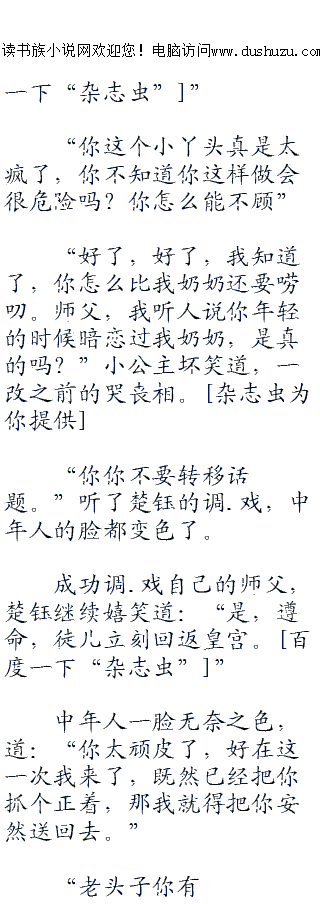 读书族小说网欢迎您！电脑访问www.dushuzu.com
一下“杂志虫”]”
“你这个小丫头真是太
疯了，你不知道你这样做会
很危险吗？你怎么能不顾”
“好了，好了，我知道
了，你怎么比我奶奶还要唠
叨。师父，我听人说你年轻
的时候暗恋过我奶奶，是真
的吗？”小公主坏笑道，一
改之前的哭丧相。[杂志虫为
你提供]
“你你不要转移话
题。”听了楚钰的调.戏，中
年人的脸都变色了。
成功调.戏自己的师父，
楚钰继续嬉笑道：“是，遵
命，徒儿立刻回返皇宫。[百
度一下“杂志虫”]”
中年人一脸无奈之色，
道：“你太顽皮了，好在这
一次我来了，既然已经把你
抓个正着，那我就得把你安
然送回去。”
“老头子你有